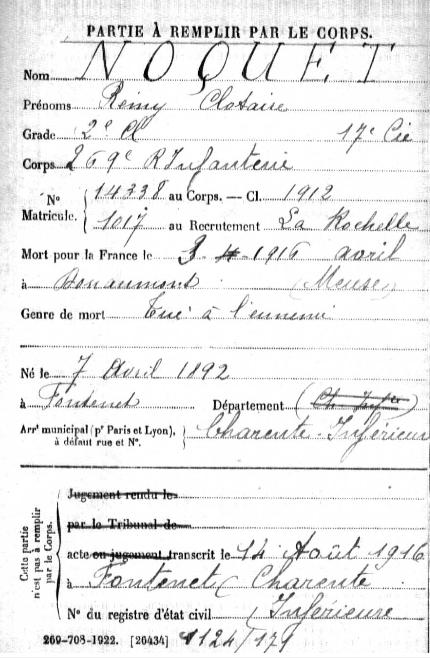 PARTIE À REMPLIR PAR LE CORPS.
Nom NOQUET
Prénoms Rémy Clotaire
Grade 2e Cl 17e Cie
Corps 269e R Infanterie
No 14338 au Corps. — Cl. 1912
Matricule. 1017 au Recrutement La Rochelle
Mort pour la France le 3 - 4 - 1916 avril
à Douaumont (Meuse)
Genre de mort Tué à l'ennemi
Né le 7 Avril 1892
à Fontenet Département (Ch. Infre)
Arrt municipal (pr Paris et Lyon), à défaut rue et No. Charente-Inférieur
Cette partie n'est pas à remplir par le Corps.
Jugement rendu le
par le Tribunal de
acte ou jugement transcrit le 14 Août 1916
à Fontenet (Charente
No du registre d'état civil Inférieure
269-708-1922. [26434] 1124/179